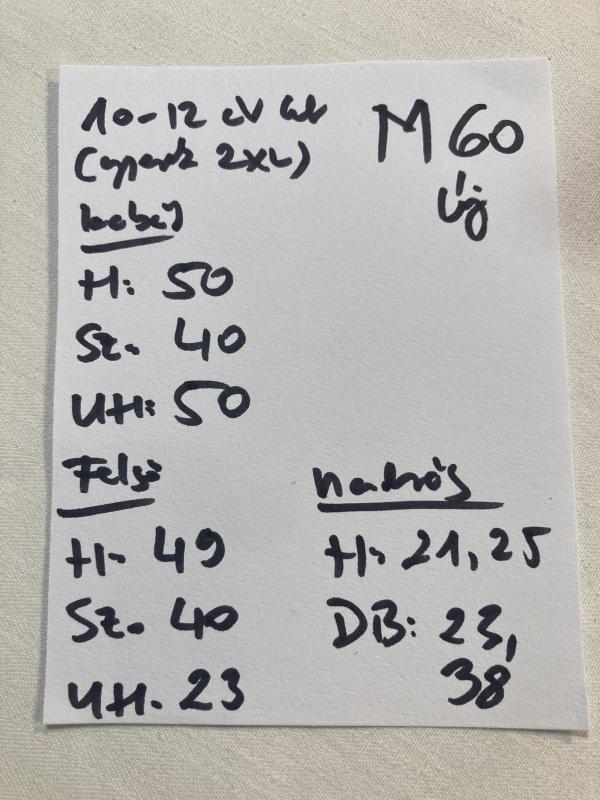 10-12 év
M 60
(gyerek 2XL)
Új
kabát
H: 50
Sz. 40
UH: 50
Felső
H. 49
Sz. 40
UH. 23
nadrág
H: 21, 25
DB: 23,
38